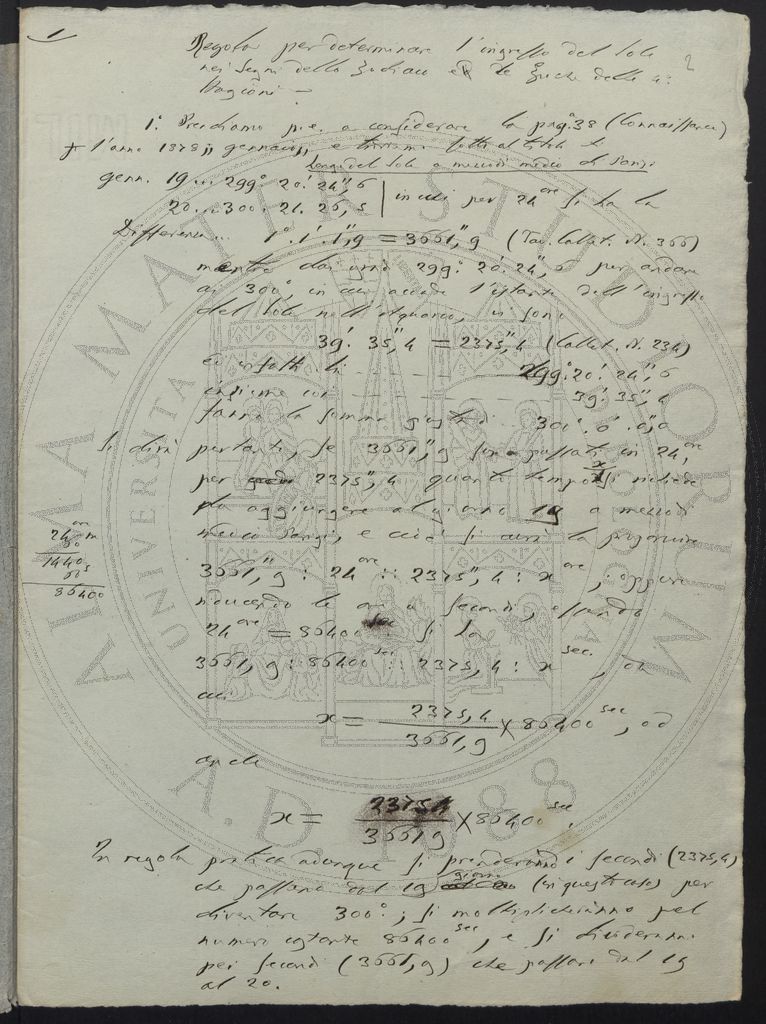 1
2
Regola per determinare l'ingresso del Sole
nei Segni dello Zodiaco ed le Epoche delle 4
Stagioni —
1.° Prendiamo p.e. a considerare la pag. 38 (Connaissance)
l'anno 1878,, gennaio,, e
Long. del Sole a mezzodì medio di Parigi
genn. 19 ... 299.° 20.' 24,'' 6
20 ... 300. 21. 26, 5 | in cui per 24 ore si ha la
Differenza... 1.° 1.' 1,'' 9 = 3661,'' 9 (Tav. Callet. N. 366)
mentre dai 299.° 20.' 24,'' 6 per andare
ai 300°, in cui accade l'istante dell'ingresso
del Sole nell'Aquario, vi sono
39.' 35,'' 4 = 2375,'' 4 (Callet. N. 234)
Ed infatti li 299.° 20.' 24,'' 6
insieme con 39.' 35,'' 4
fanno la somma giusta di 300.° 0.' 0,'' 0
Si dirà pertanto, se 3661,'' 9 sono passati in 24 ore,
per 2375,'' 4 quanto tempo x si richiede
da aggiungere al giorno 19 a mezzodì
medio Parigi, e così si avrà la proporzione
3661,'' 9 : 24 ore :: 2375,'' 4 : x ore, oppure
riducendo le ore a secondi, essendo
24 ore = 86400 sec si ha
3661,9 : 86400 sec :: 2375,4 : x sec., da
cui
x = 2375,4 / 3661,9 × 86400 sec, od
anche
x = 2375 4 / 3661 9 × 86400 sec.
24 ore
60 m
1440
60 s
86400
In regola pratica adunque si prenderanno i secondi (2375,4)
che passano dal 19 giorno (in questo caso) per
diventare 300°; si moltiplicheranno pel
numero costante 86400 sec, e si divideranno
pei secondi (3661,9) che passano dal 19
al 20.
ALMA MATER STUDIORUM
UNIVERSITA
A.D. 1088